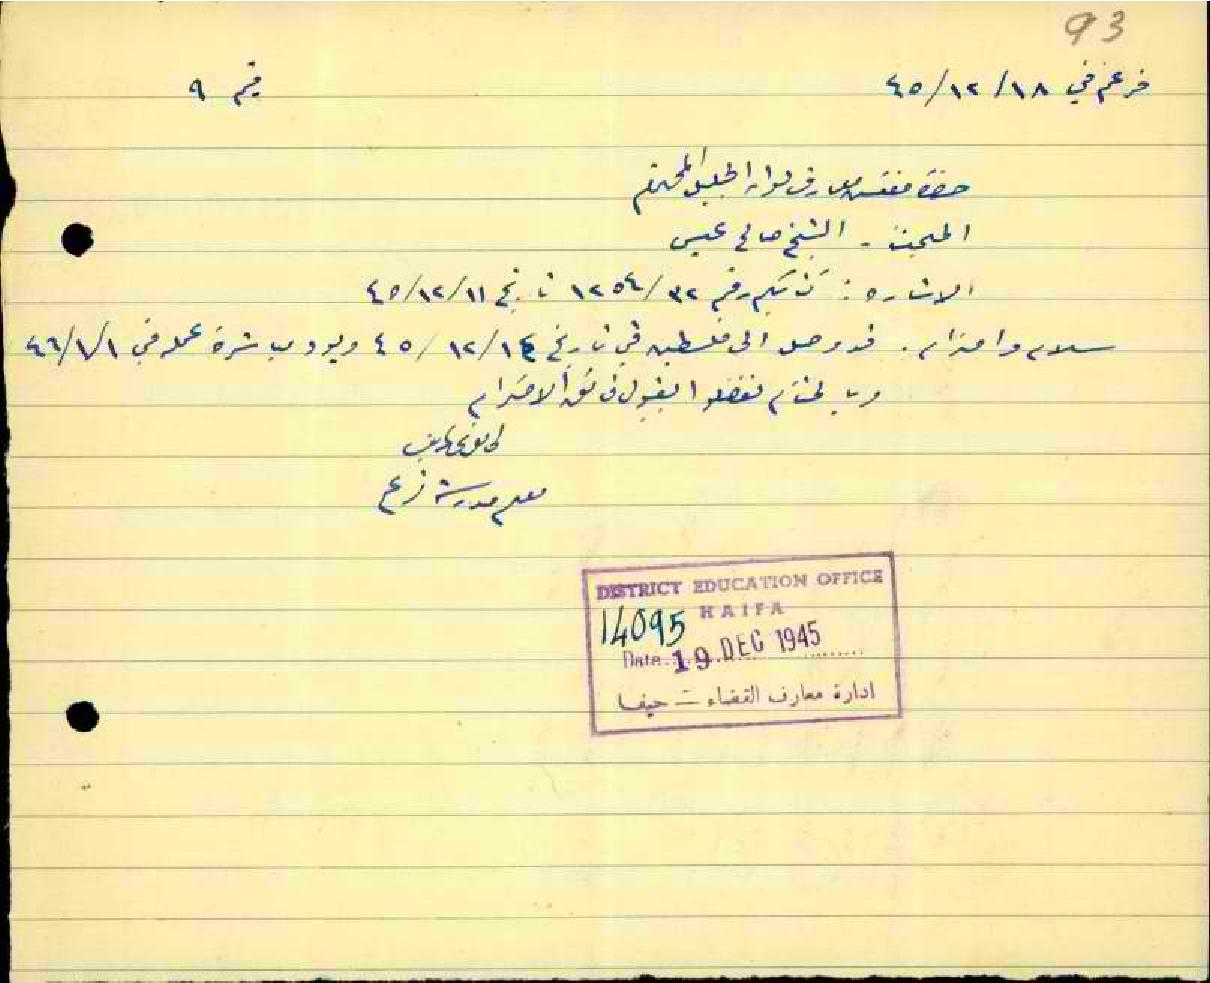 93
في ١٨/١٢/٤٥
رقم ٩
حضرة مفتش معارف لواء الجليل المحترم
الشيخ صالح
الاشارة: كتابكم رقم ١٢٥٤/٣٢ تاريخ ٤٥/١٢/١١
سلام واحترام. قد وصل الى فلسطين في تاريخ ٤٥/١٢/١٤ ويود مباشرة عمله في ٤٦/١/١
وبالختام تفضلوا بقبول فائق الاحترام
معلم مدرسة
DISTRICT EDUCATION OFFICE
HAIFA
14095
Date 19 DEC 1945
ادارة معارف القضاء – حيفا